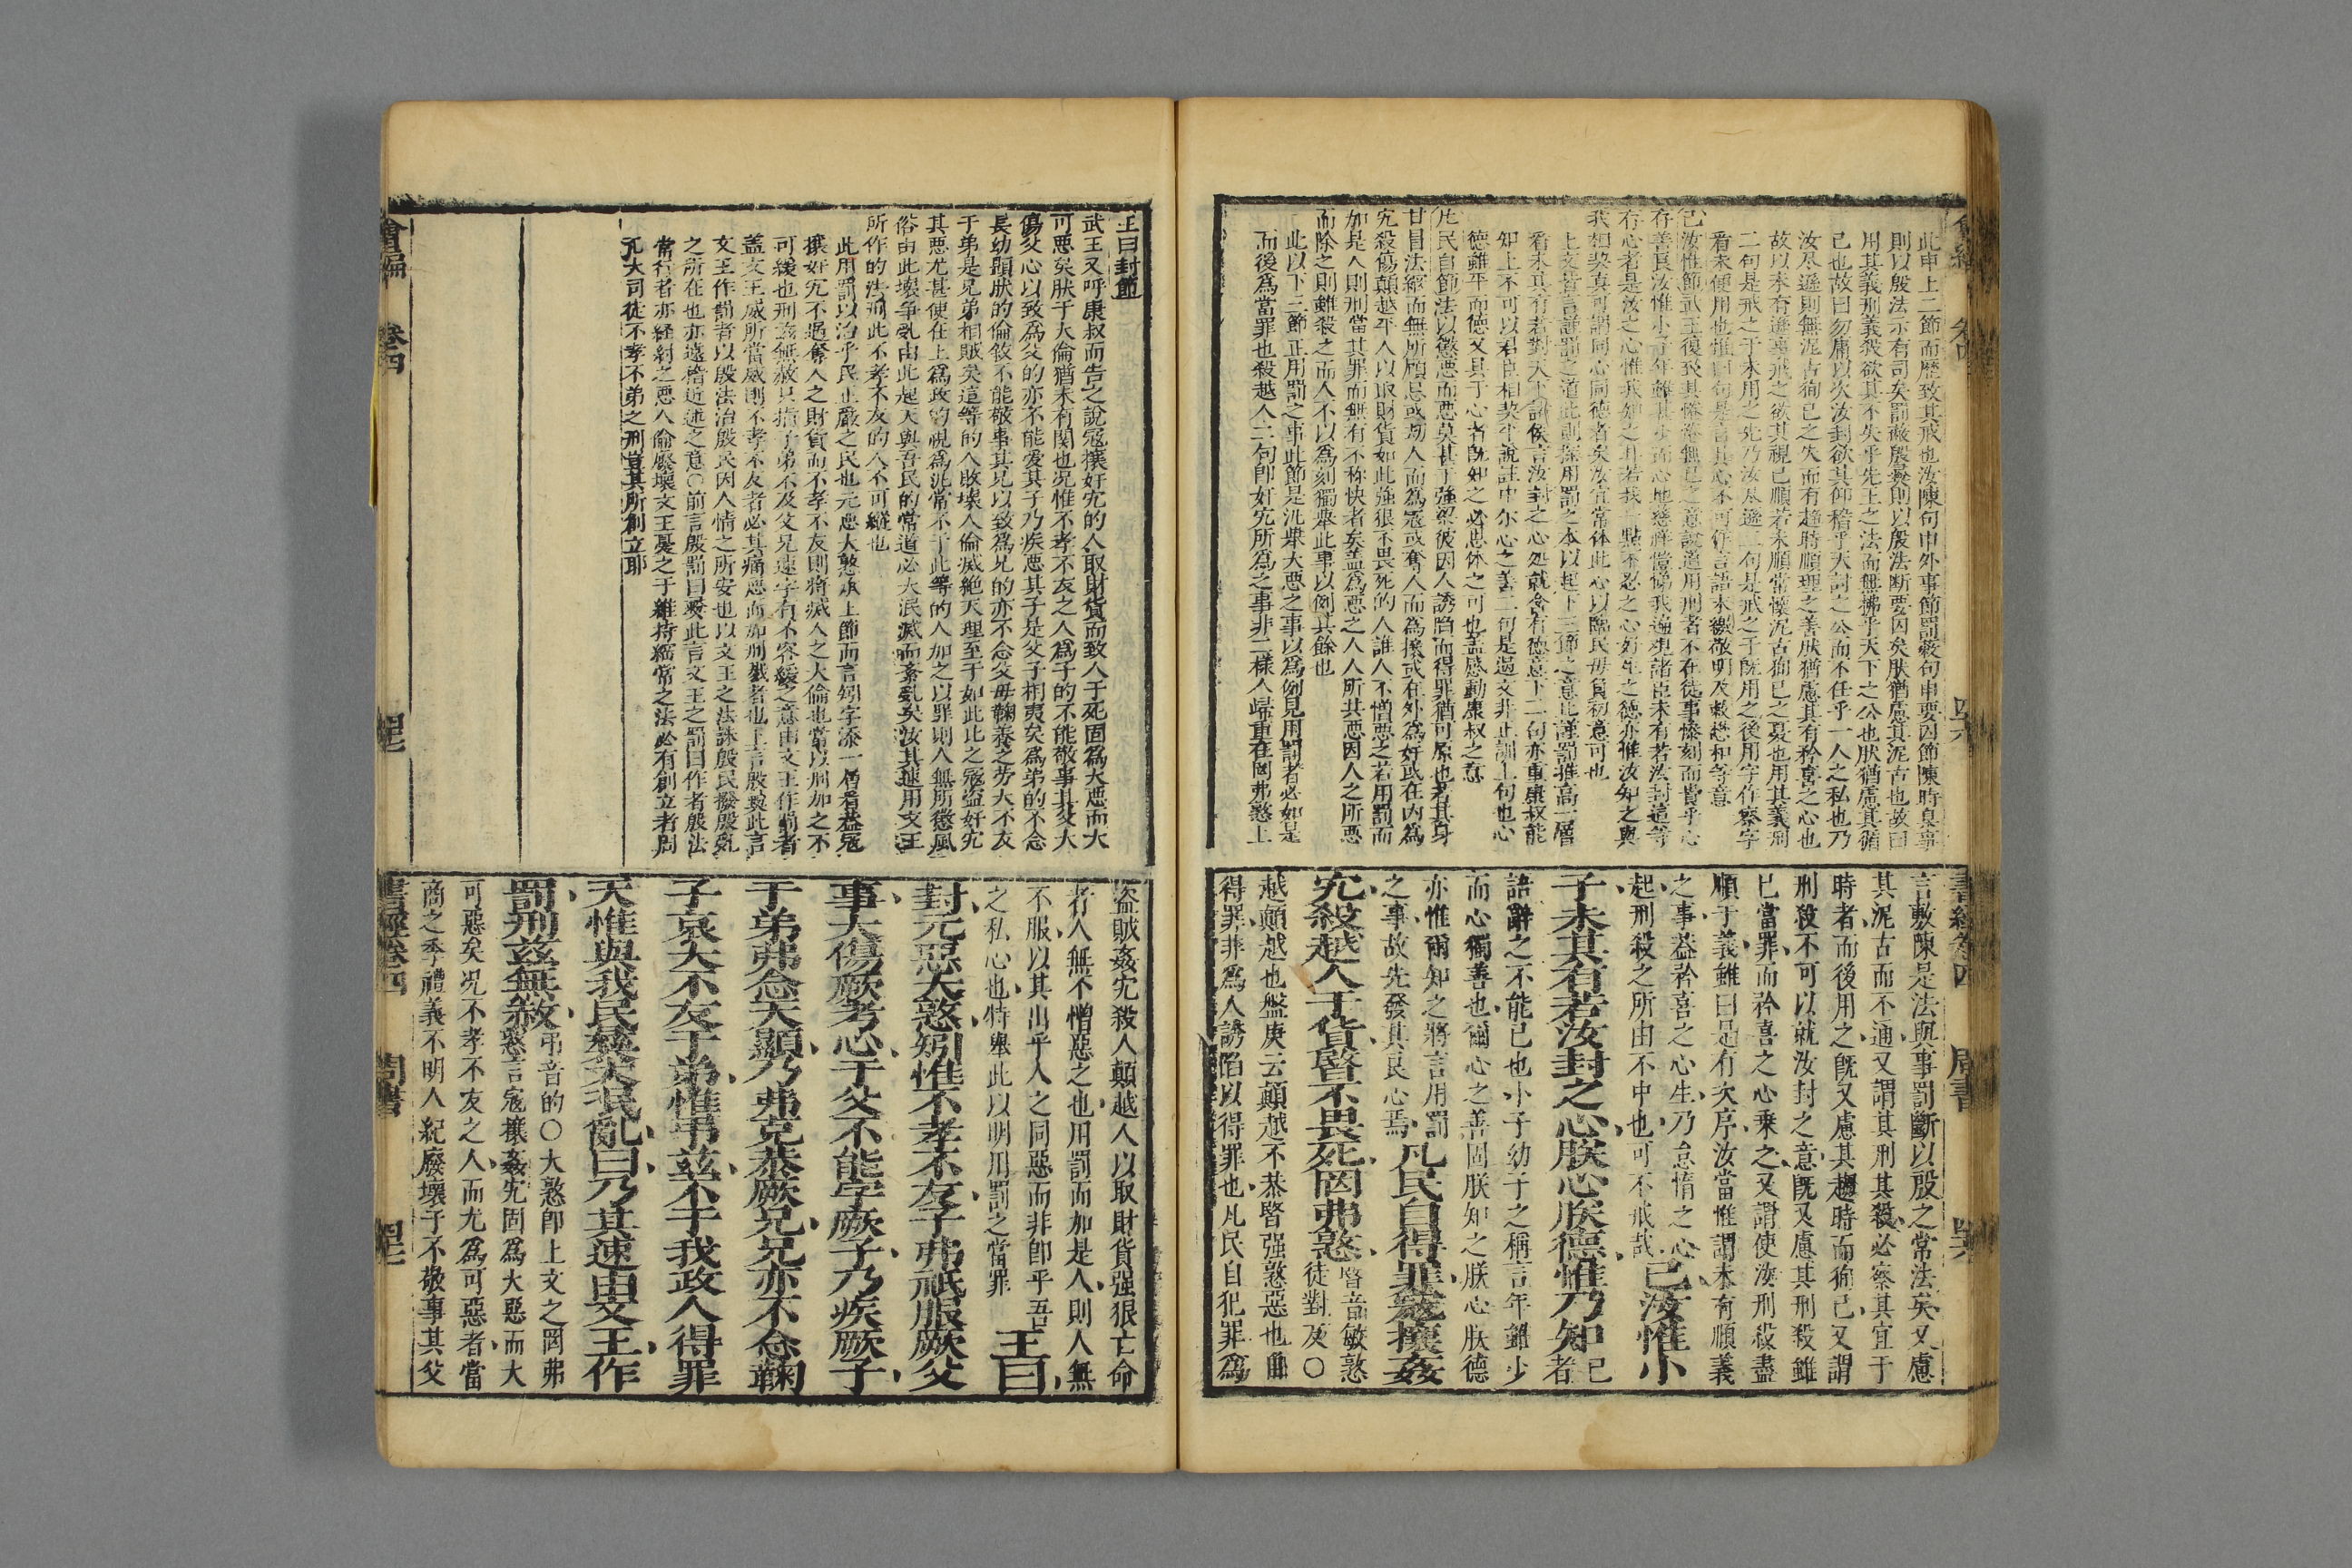 此申上二節而歷致其戒也汝陳句申外事節罰蔽句申要囚節陳時臬事
則以殷法示有司矣罰蔽殷彝則以殷法断要囚矣肰猶慮其泥古也故曰
用其義刑義殺欲其不失乎先王之法而無拂乎天下之公也肰猶慮其循
己也故曰勿庸以次汝封欲其仰稽乎天討之公而不任乎一人之私也乃
汝尽遜則無泥古狥己之失而有趋時順理之善肰猶慮其有矜喜之心也
故以未有遜事戒之欲其視己順若未順常懷泥古狥己之憂也用其義刑
二句是戒之于未用之先乃汝尽遜二句是戒之于既用之後用字作察字
看未便用也惟曰句是言其心不可作言語末繳敬明及敕懋和等意
已汝惟節武王復發其惓惓無已之意說道用刑者不在徒事慘刻而貴乎心
存善良汝惟小子年雖甚少而心地慈祥愷悌我遍視諸臣未有若汝封這等
存心者是汝之心惟我知之再若我一點不忍之心好生之德亦惟汝知之與
我相契真可謂同心同德者矣汝宜常体此心以臨民毋負初意可也
上文皆言謹罰之道此則探用罰之本以起下三節之意比謹罰推高一層
看未其有若對大小諸侯言汝封之心処就含有德意下二句亦重康叔能
知上不可以君臣相契平說註中尓心之善二句是過文非正訓上句也心
德雖平而德又具于心者既知之必思体之可也盖感動康叔之意
凡民自節法以懲惡而惡莫甚于強梁彼因人誘陷而得罪猶可原也若其身
甘冒法網而無所顧忌或刼人而為寇或奪人而為攘或在外為奸或在内為
宄殺傷顛越乎人以取財貨如此強很不畏死的人誰人不憎惡之若用罰而
加是人則刑當其罪而無有不称快者矣盖為惡之人人所共惡因人之所惡
而除之則雖殺之而人不以為刻獨舉此事以例其餘也
此以下三節正用罰之事此節是汎舉大惡之事以為例見用罰者必如是
而後為當罪也殺越人二句即奸宄所為之事非二樣人歸重在罔弗憝上
言敷陳是法與事罰斷以殷之常法矣又慮
其泥古而不通又謂其刑其殺必察其宜于
時者而後用之既又慮其趨時而狥己又謂
刑殺不可以就汝封之意既又慮其刑殺雖
已當罪而矜喜之心乗之又謂使汝刑殺盡
順于義雖曰是有次序汝當惟謂未有順義
之事葢矜喜之心生乃怠惰之心
起刑殺之所由不中也可不戒哉 已汝惟小
子未其有若汝封之心朕心朕德惟乃知 已者
語辭之不能已也小子幼于之稱言年雖少
而心獨善也爾心之善固朕知之朕心朕德
亦惟爾知之將言用罰
之事故先發其良心焉 凡民自得罪寇攘姦
宄殺越人于貨暋不畏死罔弗憝 暋音敏憝徒對反○
越顛越也盤庚云顛越不恭暋强憝惡也自
得罪非為人誘陷以得罪也凡民自犯罪為
王曰封節
武王又呼康叔而告之說寇攘奸宄的人取財貨而致人于死固為大惡而大
可惡矣肰于大倫猶未有関也况惟不孝不友之人為子的不能敬事其父大
傷父心以致為父的亦不能愛其子乃疾惡其子是父子相夷矣為弟的不念
長幼顯肰的倫敘不能敬事其兄以致為兄的亦不念父母鞠養之劳大不友
于弟是兄弟相賊矣這等的人敗壞人倫滅絶天理至于如此比之寇盜奸宄
其惡尤甚使在上為政的視為泛常不于此等的人加之以罪則人無所懲風
俗由此壞争乱由此起天與吾民的常道必大泯滅而紊乱矣汝其速用文王
所作的法刑此不孝不友的人不可縱也
此用罰以治乎民正嚴之民也元惡大憝承上節而言矧字添一層看葢寇
攘奸宄不過奪人之財貨而不孝不友則將滅人之大倫也當以刑加之不
可緩也刑兹無赦只指子弟不及父兄速字有不容緩之意由文王作罰者
盖文王威所當威則不孝不友者必其痛惡而加刑戮者也上言殷彝此言
文王作罰者以殷法治殷民因人情之所安也以文王之法誅殷民撥殷乱
之所在也亦遠稽近述之意○前言殷罰曰彝此言文王之罰曰作者殷法
常行者亦経紂之惡人倫廢壞文王憂之于維持綱常之法必有創立者周
孔大司徒不孝不弟之刑豈其所創立耶
盜賊姦宄殺人顛越人以取財貨强狠亡命
者人無不憎惡之也用罰而加是人則人無
不服以其出乎人之同惡而非即乎吾
之私心也特舉此以明用罰之當罪 王曰
封元惡大憝矧惟不孝不友子弗祇服厥父
事大傷厥考心于父不能字厥子乃疾厥子
于弟弗念天顯乃弗克恭厥兄兄亦不念鞠
子哀大不友于弟惟弔兹不于我政人得罪
天惟與我民彝大泯亂曰乃其速由文王作
罰刑兹無赦 弔音的○大憝即上文之罔弗憝言寇攘姦宄固為大惡而大
可惡矣况不孝不友之人而尤為可惡者當
商之季禮義不明人紀廢壞子不敬事其父
會編 卷四
書經卷四 周書